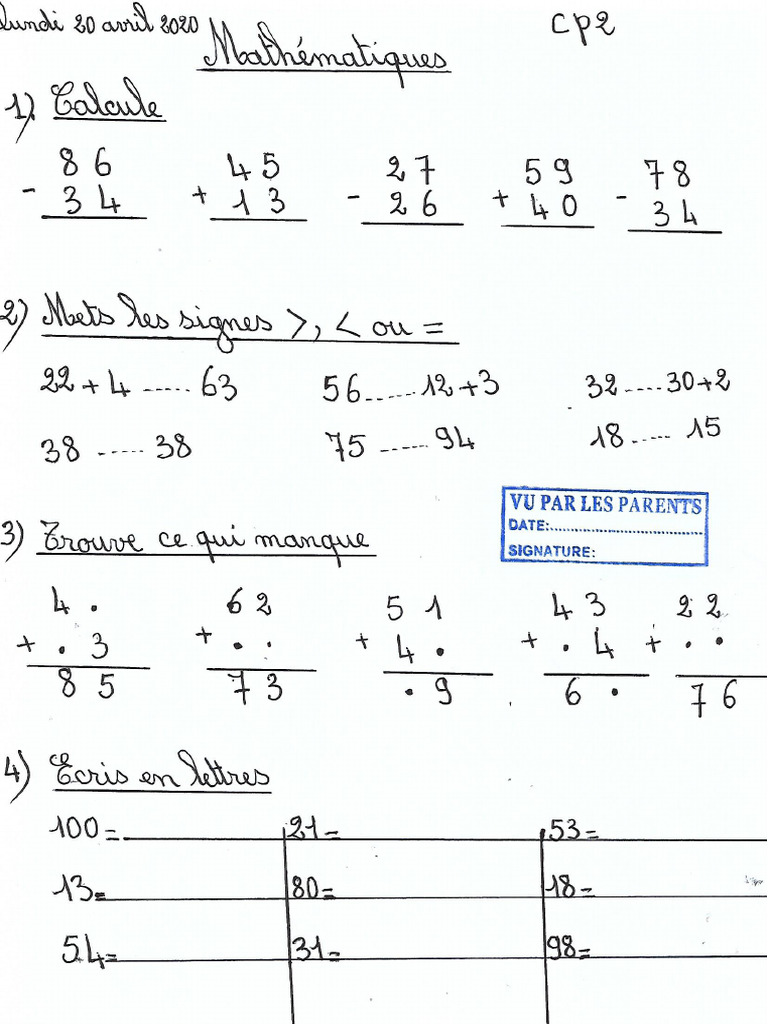 lundi 20 avril 2020 CP2
Mathématiques
1) Calcule
86 45 27 59 78
- 34 + 13 - 26 + 40 - 34
2) Mets les signes >, < ou =
22 + 4 ...... 63 56 ...... 12 + 3 32 ..... 30 + 2
38 ...... 38 75 ...... 94 18 ..... 15
VU PAR LES PARENTS
DATE:....................................
SIGNATURE:
3) Trouve ce qui manque
4 . 62 51 43 22
+ . 3 + . . + 4 . + . 4 + . .
85 73 . 9 6 . 76
4) Ecris en lettres
100= 21= 53=
13= 80= 18=
54= 31= 98=